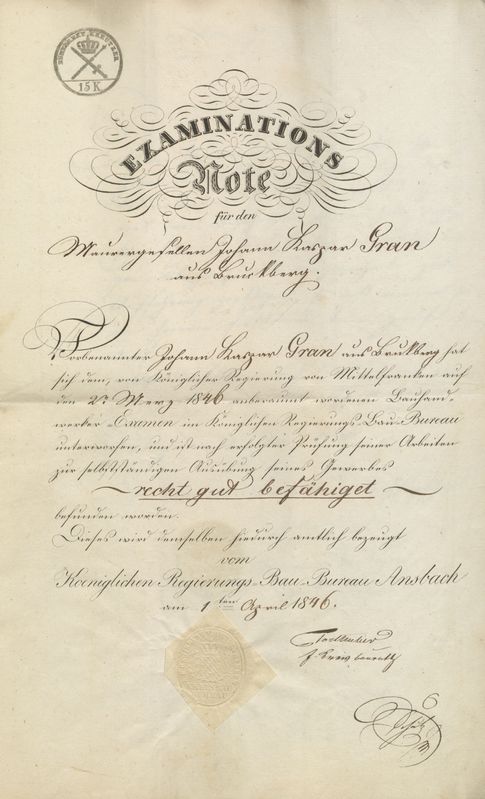 15 K
EXAMINATIONS
Note
für den
Maurergesellen Johann Kaspar Gran
aus Bruckberg.
Vorbenannter Johann Kaspar Gran aus Brukberg hat
sich dem, von Königlicher Regierung von Mittelfranken auf
den 2n Merz 1846 anberaumt wordenen Bauhand-
werker-Examen im Königlichen Regierungs-Bau-Bureau
unterworfen, und ist nach erfolgter Prüfung seiner Arbeiten
zur selbstständigen Ausübung seines Gewerbes
recht gut befähiget
befunden worden.
Dieses wird demselben hiedurch amtlich bezeugt
vom
Koeniglichen Regierungs-Bau-Bureau Ansbach
am 1ten April 1846.